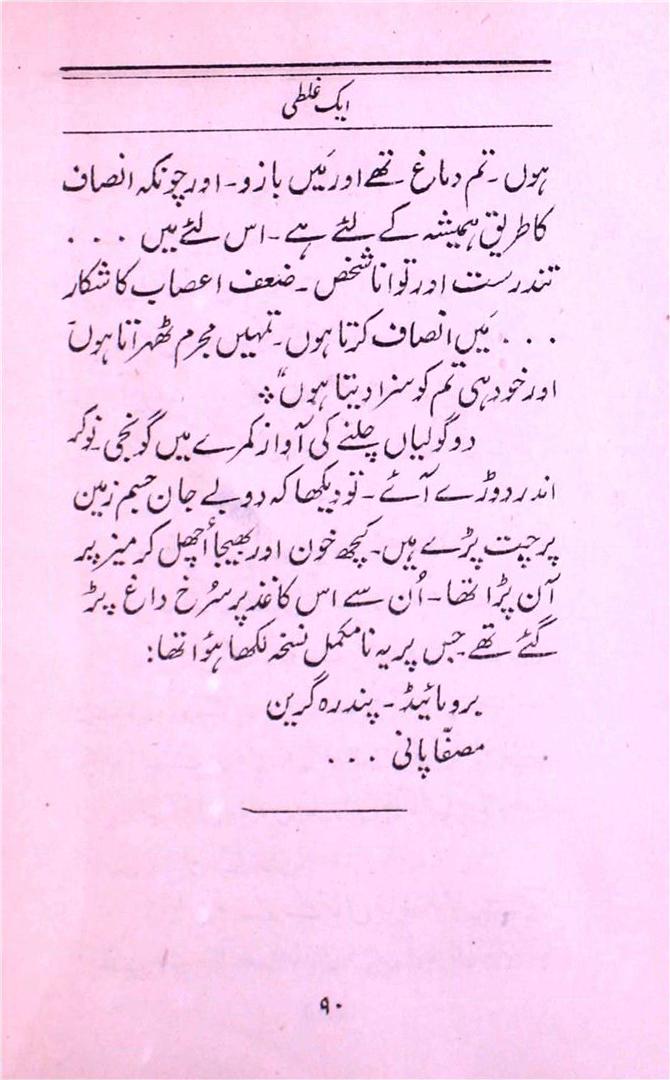 ایک غلطی
ہوں۔ تم دماغ تھے اور مَیں بازو۔ اور چونکہ انصاف
کا طریق ہمیشہ کے لئے ہے۔ اس لئے میں . . .
تندرست اور توانا شخص۔ ضعف اعصاب کا شکار
. . . مَیں انصاف کرتا ہوں۔ تمہیں مجرم ٹھہراتا ہوں
اور خود ہی تم کو سزا دیتا ہوں"؞
دو گولیاں چلنے کی آواز کمرے میں گونجی۔ نوکر
اندر دوڑے آئے۔ تو دیکھا کہ دو بے جان جسم زمین
پر چت پڑے ہیں۔ کچھ خون اور بھیجا اُچھل کر میز پر
آن پڑا تھا۔ اُن سے اس کاغذ پر سُرخ داغ پڑ
گئے تھے جس پر یہ نامکمل نسخہ لکھا ہؤا تھا:
برومائیڈ۔ پندرہ گرین
مصفّا پانی . . .
۹۰